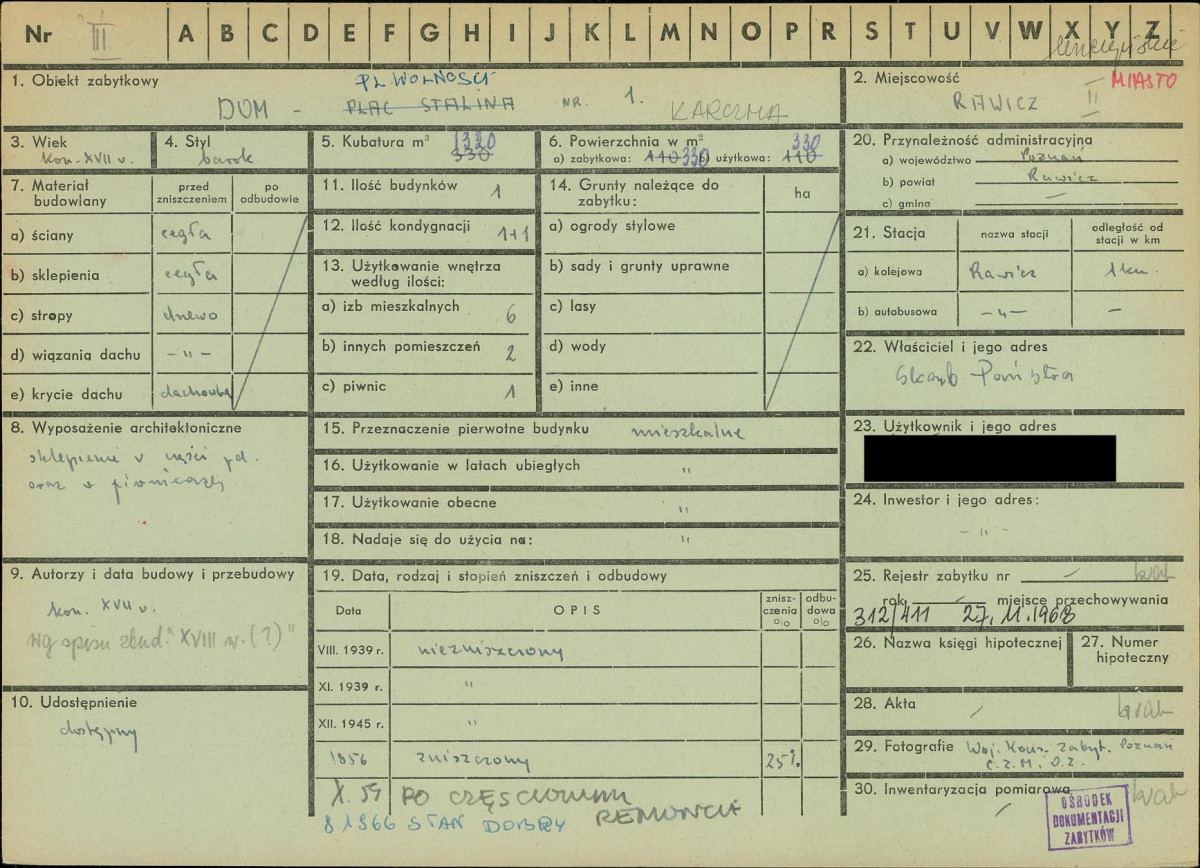 Nr III A B C D E F G H I J K L M N O P R S T U V W X Y Z
1. Obiekt zabytkowy
PL. WOLNOŚCI
DOM - PLAC STALINA NR. 1. KARCZMA
2. Miejscowość MIASTO
RAWICZ II
3. Wiek
kon. XVII w.
4. Styl
barok
5. Kubatura m³ 1320
330
6. Powierzchnia w m² 330
a) zabytkowa: 110 330 b) użytkowa: 110
20. Przynależność administracyjna
a) województwo Poznań
b) powiat Rawicz
c) gmina —
7. Materiał budowlany
przed zniszczeniem
po odbudowie
a) ściany cegła
b) sklepienia cegła
c) stropy drewo
d) wiązania dachu -"-
e) krycie dachu dachówka
11. Ilość budynków 1
12. Ilość kondygnacji 1+1
13. Użytkowanie wnętrza
według ilości:
a) izb mieszkalnych 6
b) innych pomieszczeń 2
c) piwnic 1
14. Grunty należące do
zabytku:
ha
a) ogrody stylowe
b) sady i grunty uprawne
c) lasy
d) wody
e) inne
21. Stacja
nazwa stacji
odległość od
stacji w km
a) kolejowa Rawicz 1 km.
b) autobusowa -"- —
22. Właściciel i jego adres
Skarb Państwa
8. Wyposażenie architektoniczne
sklepienie w części pd.
oraz w piwnicach
15. Przeznaczenie pierwotne budynku mieszkalne
16. Użytkowanie w latach ubiegłych "
17. Użytkowanie obecne "
18. Nadaje się do użycia na: "
23. Użytkownik i jego adres
24. Inwestor i jego adres:
-"-
9. Autorzy i data budowy i przebudowy
kon. XVII w.
wg spisu zbud. "XVIII w. (?)"
10. Udostępnienie
dostępny
19. Data, rodzaj i stopień zniszczeń i odbudowy
Data
OPIS
zniszczenia %
odbudowa %
VIII. 1939 r. niezniszczony
XI. 1939 r. "
XII. 1945 r. "
1956 zniszczony 25%
X. 59 PO CZĘŚCIOWYM REMONCIE
8.1966 STAN DOBRY
25. Rejestr zabytku nr — brak
rok — miejsce przechowywania
312/411 27.11.1968
26. Nazwa księgi hipotecznej
27. Numer
hipoteczny
28. Akta / brak
29. Fotografie Woj. Kons. Zabyt. Poznań
C.Z.M.O.Z.
30. Inwentaryzacja pomiarowa brak
/
OŚRODEK
DOKUMENTACJI
ZABYTKÓW